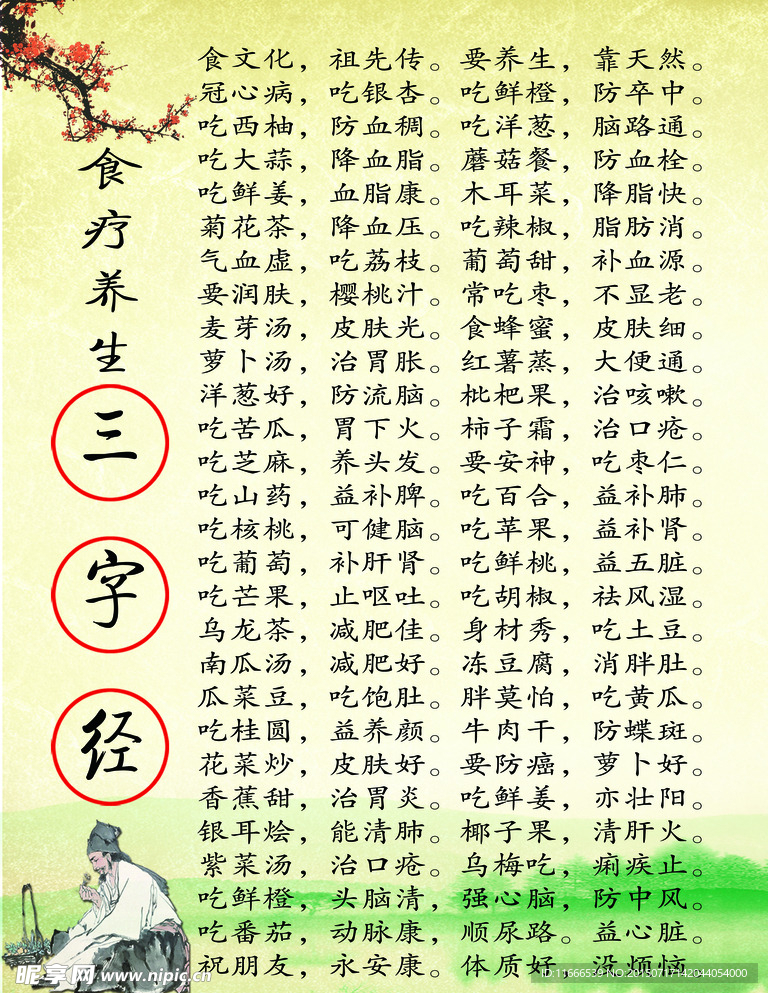 食疗养生
三
字
经
食文化，祖先传。要养生，靠天然。
冠心病，吃银杏。吃鲜橙，防卒中。
吃西柚，防血稠。吃洋葱，脑路通。
吃大蒜，降血脂。蘑菇餐，防血栓。
吃鲜姜，血脂康。木耳菜，降脂快。
菊花茶，降血压。吃辣椒，脂肪消。
气血虚，吃荔枝。葡萄甜，补血源。
要润肤，樱桃汁。常吃枣，不显老。
麦芽汤，皮肤光。食蜂蜜，皮肤细。
萝卜汤，治胃胀。红薯蒸，大便通。
洋葱好，防流脑。枇杷果，治咳嗽。
吃苦瓜，胃下火。柿子霜，治口疮。
吃芝麻，养头发。要安神，吃枣仁。
吃山药，益补脾。吃百合，益补肺。
吃核桃，可健脑。吃苹果，益补肾。
吃葡萄，补肝肾。吃鲜桃，益五脏。
吃芒果，止呕吐。吃胡椒，祛风湿。
乌龙茶，减肥佳。身材秀，吃土豆。
南瓜汤，减肥好。冻豆腐，消胖肚。
瓜菜豆，吃饱肚。胖莫怕，吃黄瓜。
吃桂圆，益养颜。牛肉干，防蝶斑。
花菜炒，皮肤好。要防癌，萝卜好。
香蕉甜，治胃炎。吃鲜姜，亦壮阳。
银耳烩，能清肺。椰子果，清肝火。
紫菜汤，治口疮。乌梅吃，痢疾止。
吃鲜橙，头脑清，强心脑，防中风。
吃番茄，动脉康，顺尿路。益心脏。
祝朋友，永安康。体质好，没烦恼。
昵享网 www.nipic.cn
ID:11666539 NO:20150717142044054000